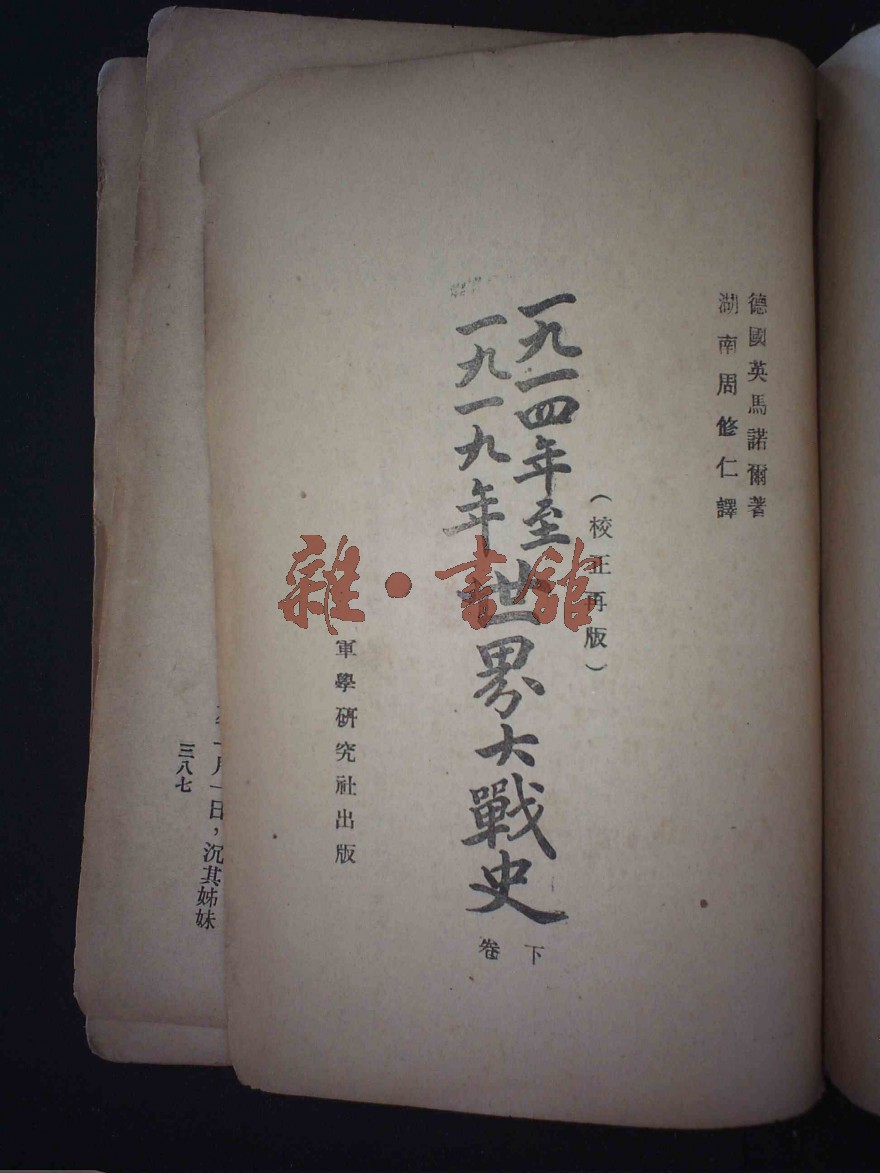 德國英馬諾爾著
湖南周修仁譯
(校正再版)
一九一四年至
一九一九年
世界大戰史
下卷
軍學研究社出版
雜·書舘
月一日，沉其姊妹
三八七